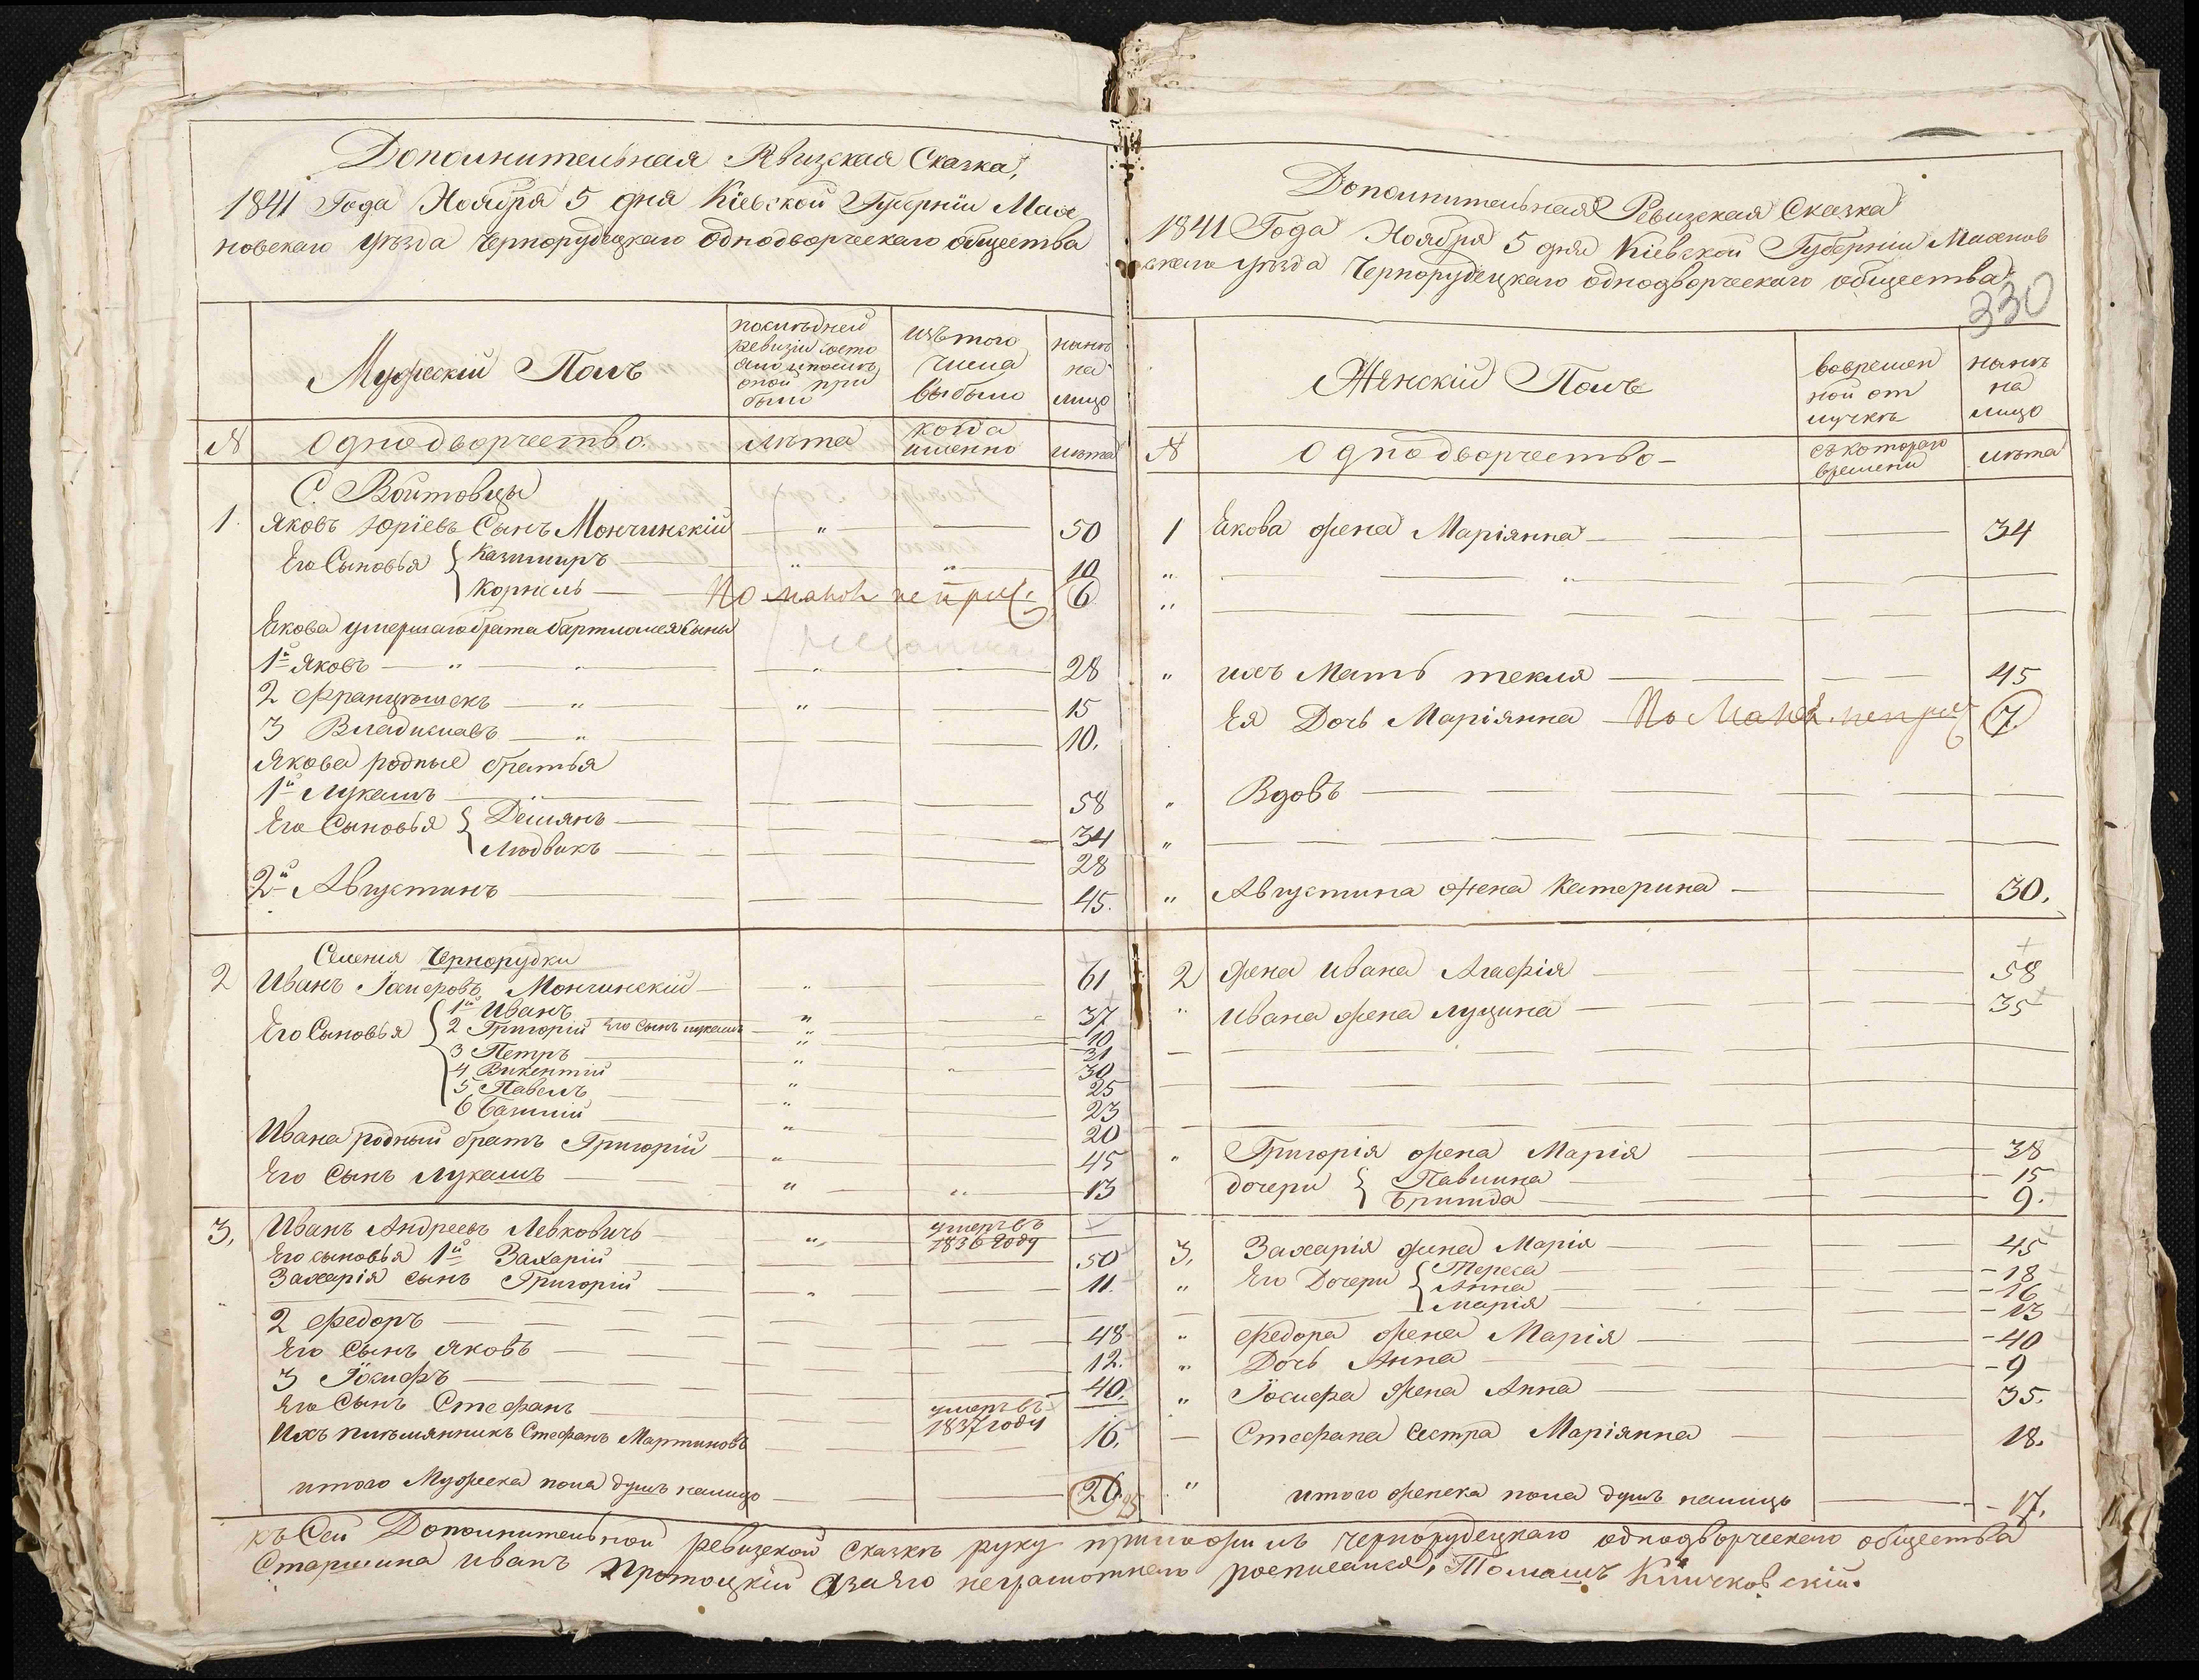 Дополнительная Ревизская Сказка,
1841 Года Ноября 5 дня Кіевской Губерніи Мах
новскаго уѣзда Чернорудецкаго однодворческаго общества
Мужескій Полъ
последней
ревизіи состо
яло и послѣ
оной при
было
изъ того
числа
выбыло
нынѣ
на
лицо
№ Однодворчество. лѣта когда
именно лѣта
С. Войтовцы
1. Яковъ Юріевъ Сынъ Мончинскій " 50
Его Сыновья { Казимиръ " " 10
Корнель 6
Якова умершаго брата бартломея Сыны
1й Яковъ " " " 28
2 Францишекъ " " 15
3 Владиславъ " 10.
Якова родные братья
1й Лукашъ 58
Его Сыновья { Демянъ 34
Людвикъ 28
2й Августинъ 45.
Селенія Чернорудки
2 Иванъ Мончинскій " 61
Его Сыновья { 1й Иванъ " 37
2 Григорій его сынъ лукашъ " 10
31
3 Петръ " 30
4 Викентій " 25
5 Павелъ " 23
6 " 20
Ивана родный братъ Григорій " 45
Его Сынъ Лукашъ " " 13
3, Иванъ Андреевъ Левковичъ " умеръ въ
1836 году
Его сыновья 1й Захарій 50
Захарія сынъ Григорій " 11.
2 Федоръ 48
Его Сынъ Яковъ 12.
3 Іосифъ 40.
Его Сынъ Стефанъ умеръ въ
1837 году
Ихъ племянникъ Стефанъ Мартиновъ 16.
итого Мужеска пола душъ налицо 26 25
Дополнительная Ревизская Сказка
1841 Года Ноября 5 дня Кіевской Губерніи Махнов
скаго уѣзда Чернорудецкаго однодворческаго общества,
330
Женскій Полъ
вовремен
ной от
лучкѣ
нынѣ
на
лицо
№ Однодворчество съ котораго
времени лѣта
1 Якова жена Маріянна 34
" "
"
" ихъ Мать текля 45
Ея Дочь Маріянна 7
" Вдовъ
"
" Августина жена Катерина 30.
2 жена Ивана Агафія 58
" Ивана жена луцина 35
" Григорія жена Марія 38
дочери { Павлина 15
Бригида 9.
3, Захарія жена Марія 45
" Его Дочери { Тереса 18
Анна 16
Марія 13
" Федора жена Марія 40
" Дочь Анна 9
" Іосифа жена Анна 35.
Стефана Сестра Маріянна 18.
" итого женска пола душъ налицо 17.
къ Сей Дополнительной ревизской сказкѣ руку приложилъ чернорудецкаго однодворческаго общества
Старшина иванъ Протоцкій а за его неграмотнаго росписался, Томашъ Кличковскій.